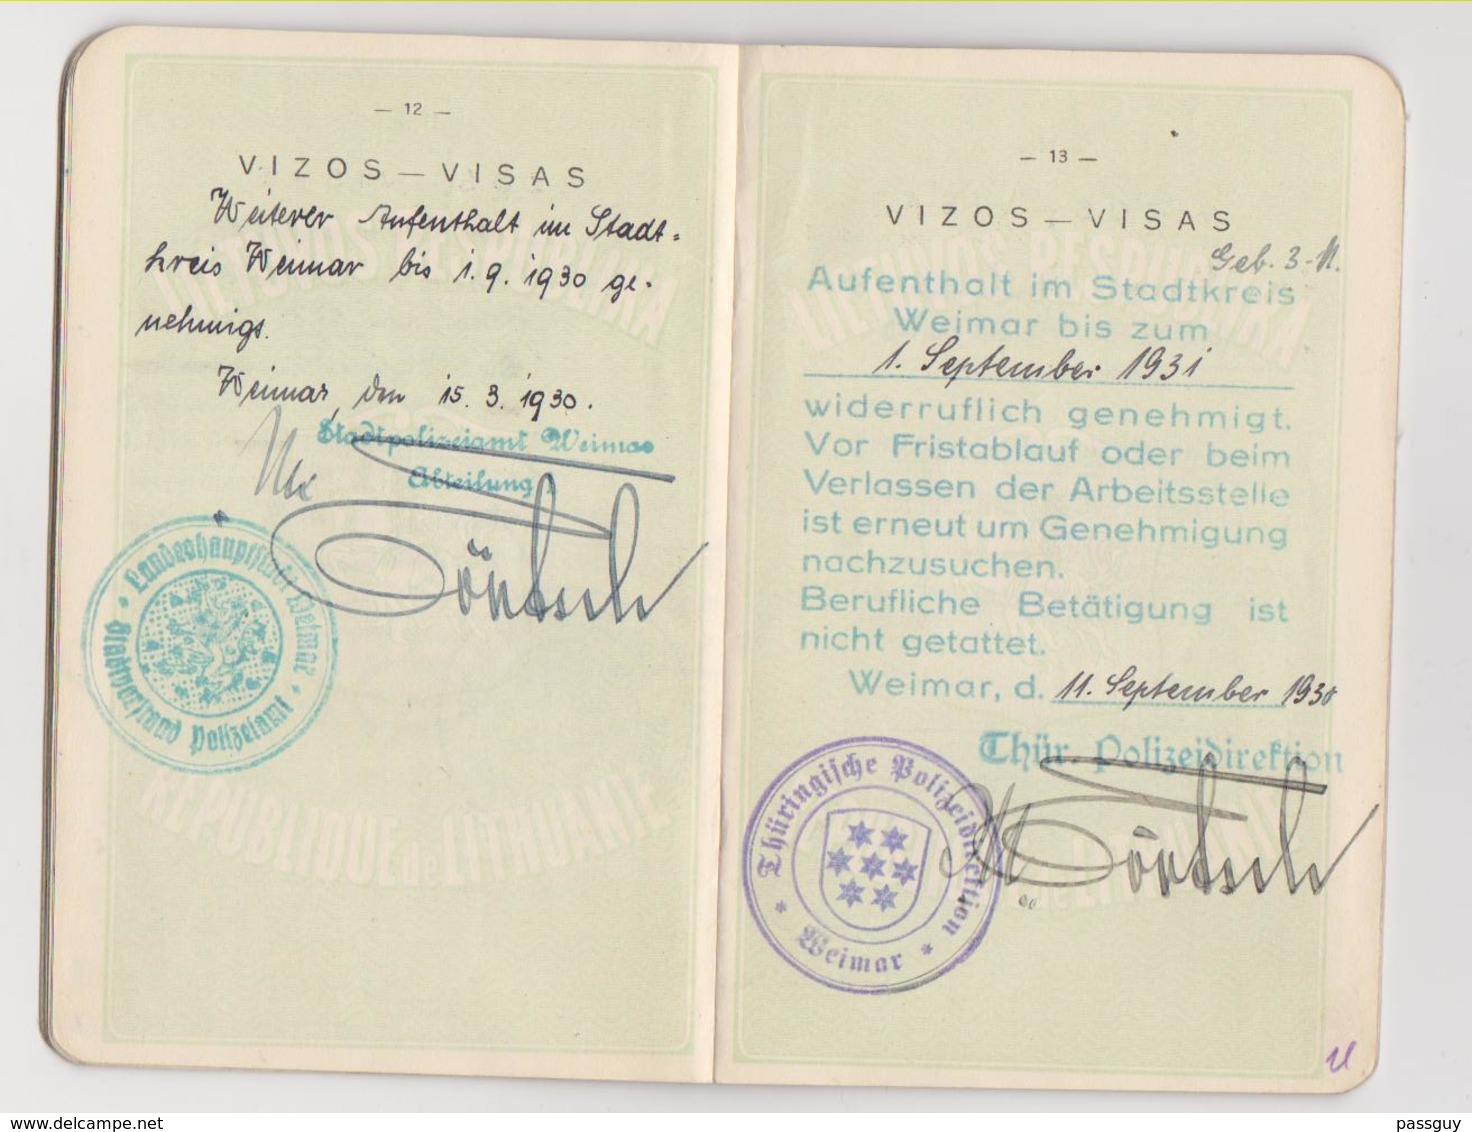 — 12 —
VIZOS — VISAS
Weiterer Aufenthalt im Stadt-
kreis Weimar bis 1.9.1930 ge-
nehmigt.
Weimar, den 15.3.1930.
Stadtpolizeiamt Weimar
Abteilung
Landeshauptstadt Weimar
Stadtvorstand Polizeiamt
LIETUVOS RESPUBLIKA
REPUBLIQUE de LITHUANIE
— 13 —
VIZOS — VISAS
Geb. 3.- M.
Aufenthalt im Stadtkreis
Weimar bis zum
1. September 1931
widerruflich genehmigt.
Vor Fristablauf oder beim
Verlassen der Arbeitsstelle
ist erneut um Genehmigung
nachzusuchen.
Berufliche Betätigung ist
nicht getattet.
Weimar, d. 11. September 1930
Thür. Polizeidirektion
Thüringische Polizeidirektion
* Weimar *
LIETUVOS RESPUBLIKA
delcampe.net
passguy